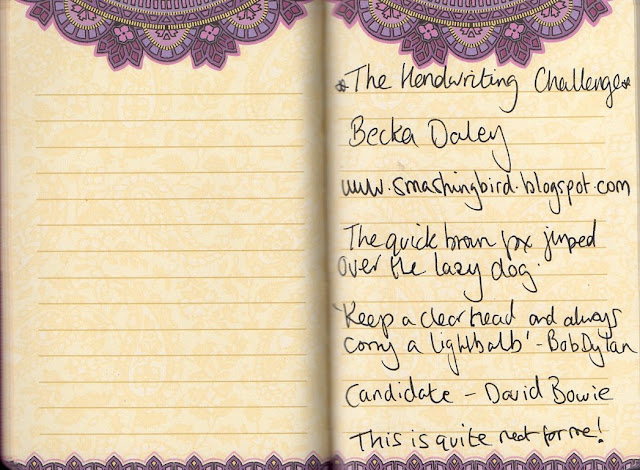 *The Handwriting Challenge*
Becka Daley
www.smashingbird.blogspot.com
The quick brown fox jumped
over the lazy dog.
'Keep a clear head and always
carry a lightbulb' - Bob Dylan
Candidate - David Bowie
This is quite neat for me!